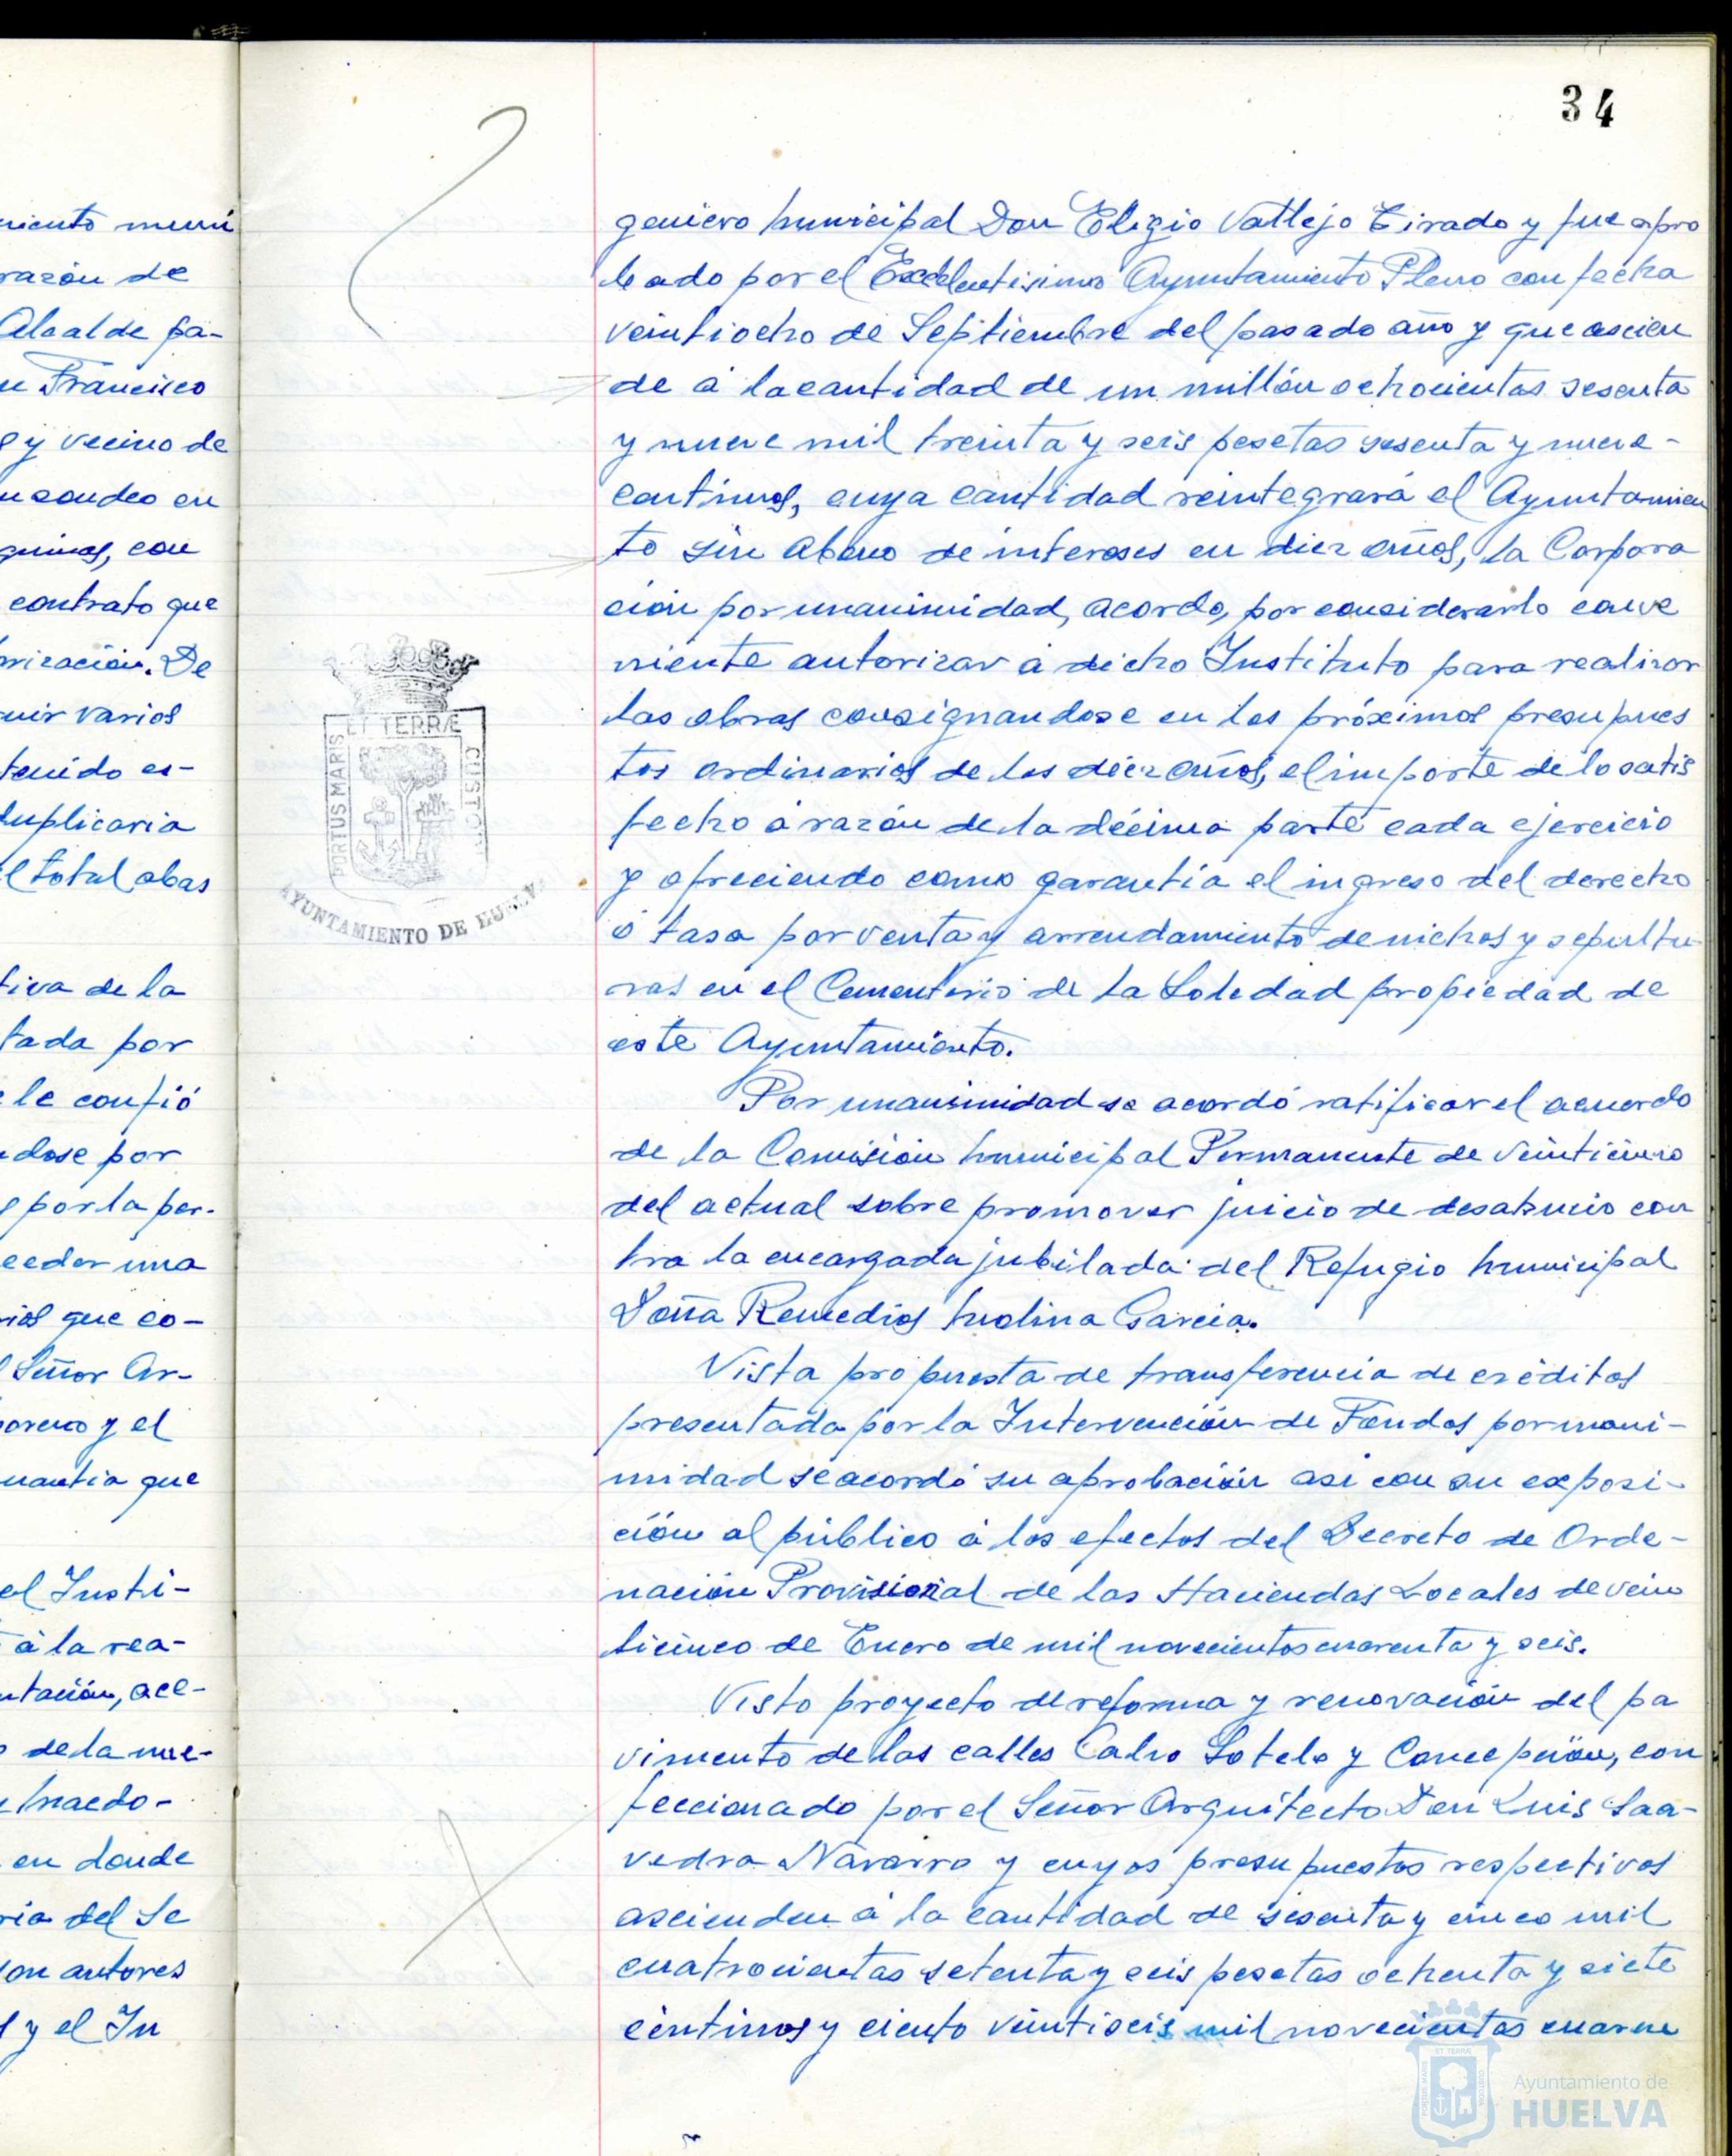 34
niento muni
razón de
Alcalde pa-
n Francisco
e y vecino de
n sondeo en
quinas, con
contrato que
rización. De
uir varios
tenido es-
duplicaria
el total abas
tiva de la
tada por
e le confió
ndose por
e por la per-
ceder una
rios que co-
l Señor Ar-
oreno y el
uantia que
el Insti-
à la rea-
ntación, ace-
o de la nue-
Macdo-
en donde
ria del Se
son autores
s y el In
geniero Municipal Don Eligio Vallejo Tirado y fue apro
bado por el Excelentisimo Ayuntamiento Pleno con fecha
veintiocho de Septiembre del pasado año y que ascien
de à la cantidad de un millón ochocientas sesenta
y nueve mil treinta y seis pesetas sesenta y nueve-
centimos, cuya cantidad reintegrará el Ayuntamien
to sin abono de intereses en diez años, la Corpora
ción por unanimidad, acordo, por considerarlo conve
niente autorizar à dicho Instituto para realizar
las obras consignandose en los próximos presupues
tos ordinarios de los diez años, el importe de lo satis
fecho à razón de la décima parte cada ejercicio
y ofreciendo como garantía el ingreso del derecho
ó tasa por venta y arrendamiento de nichos y sepultu
ras en el Cementerio de La Soledad propiedad de
este Ayuntamiento.
Por unanimidad se acordó ratificar el acuerdo
de la Comisión Municipal Permanente de veinticinco
del actual sobre promover juicio de desahucio con
tra la encargada jubilada del Refugio Municipal
Doña Remedios Molina Garcia.
Vista propuesta de transferencia de créditos
presentada por la Intervención de Fondos por unani-
midad se acordó su aprobación asi con su exposi-
ción al público à los efectos del Decreto de Orde-
nación Provisional de las Haciendas Locales de vein
ticinco de Enero de mil novecientos cuarenta y seis.
Visto proyecto de reforma y renovación del pa
vimento de las calles Calvo Sotelo y Concepción, con
feccionado por el Señor Arquitecto Don Luis Saa-
vedra Navarro y cuyos presupuestos respectivos
ascienden à la cantidad de sesenta y cinco mil
cuatrocientas setenta y seis pesetas ochenta y siete
céntimos y ciento veintiseis mil novecientas cuaren
PORTUS MARIS ET TERRÆ CUSTODI
AYUNTAMIENTO DE HUELVA
Ayuntamiento de
HUELVA